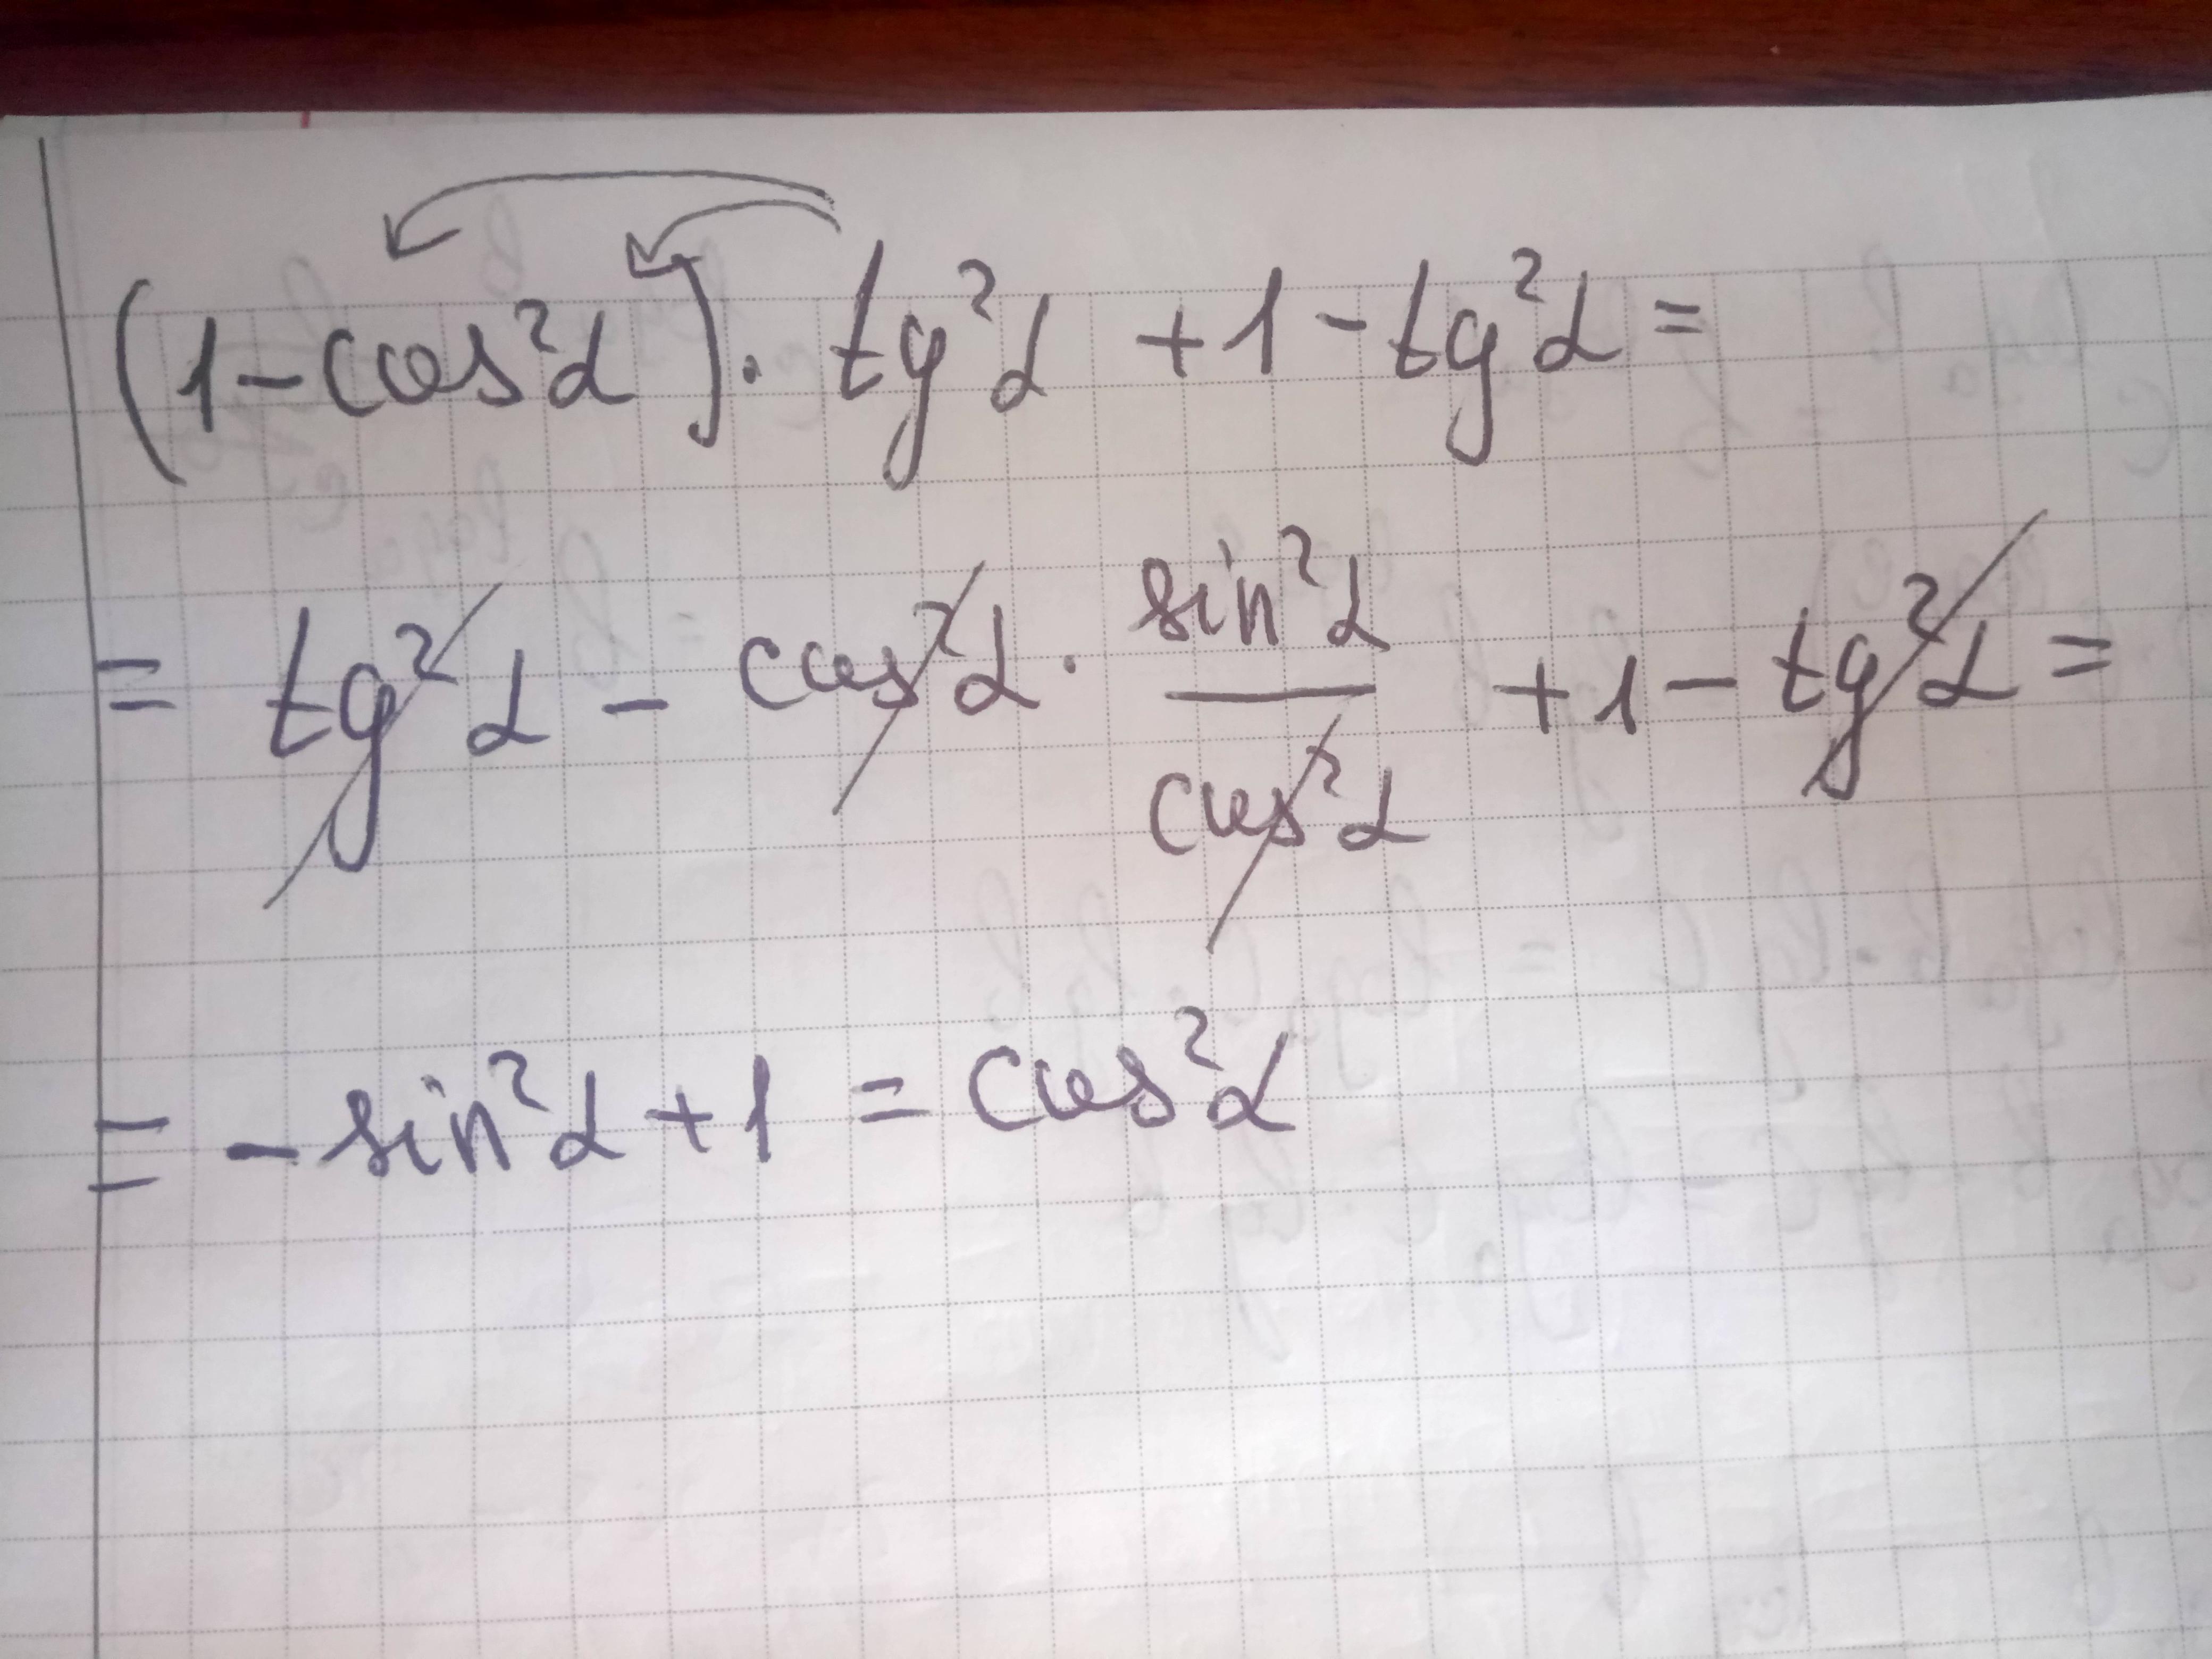 (1-cos²α)·tg²α+1-tg²α=
=tg²α-cos²α·sin²α/cos²α+1-tg²α=
=-sin²α+1=cos²α